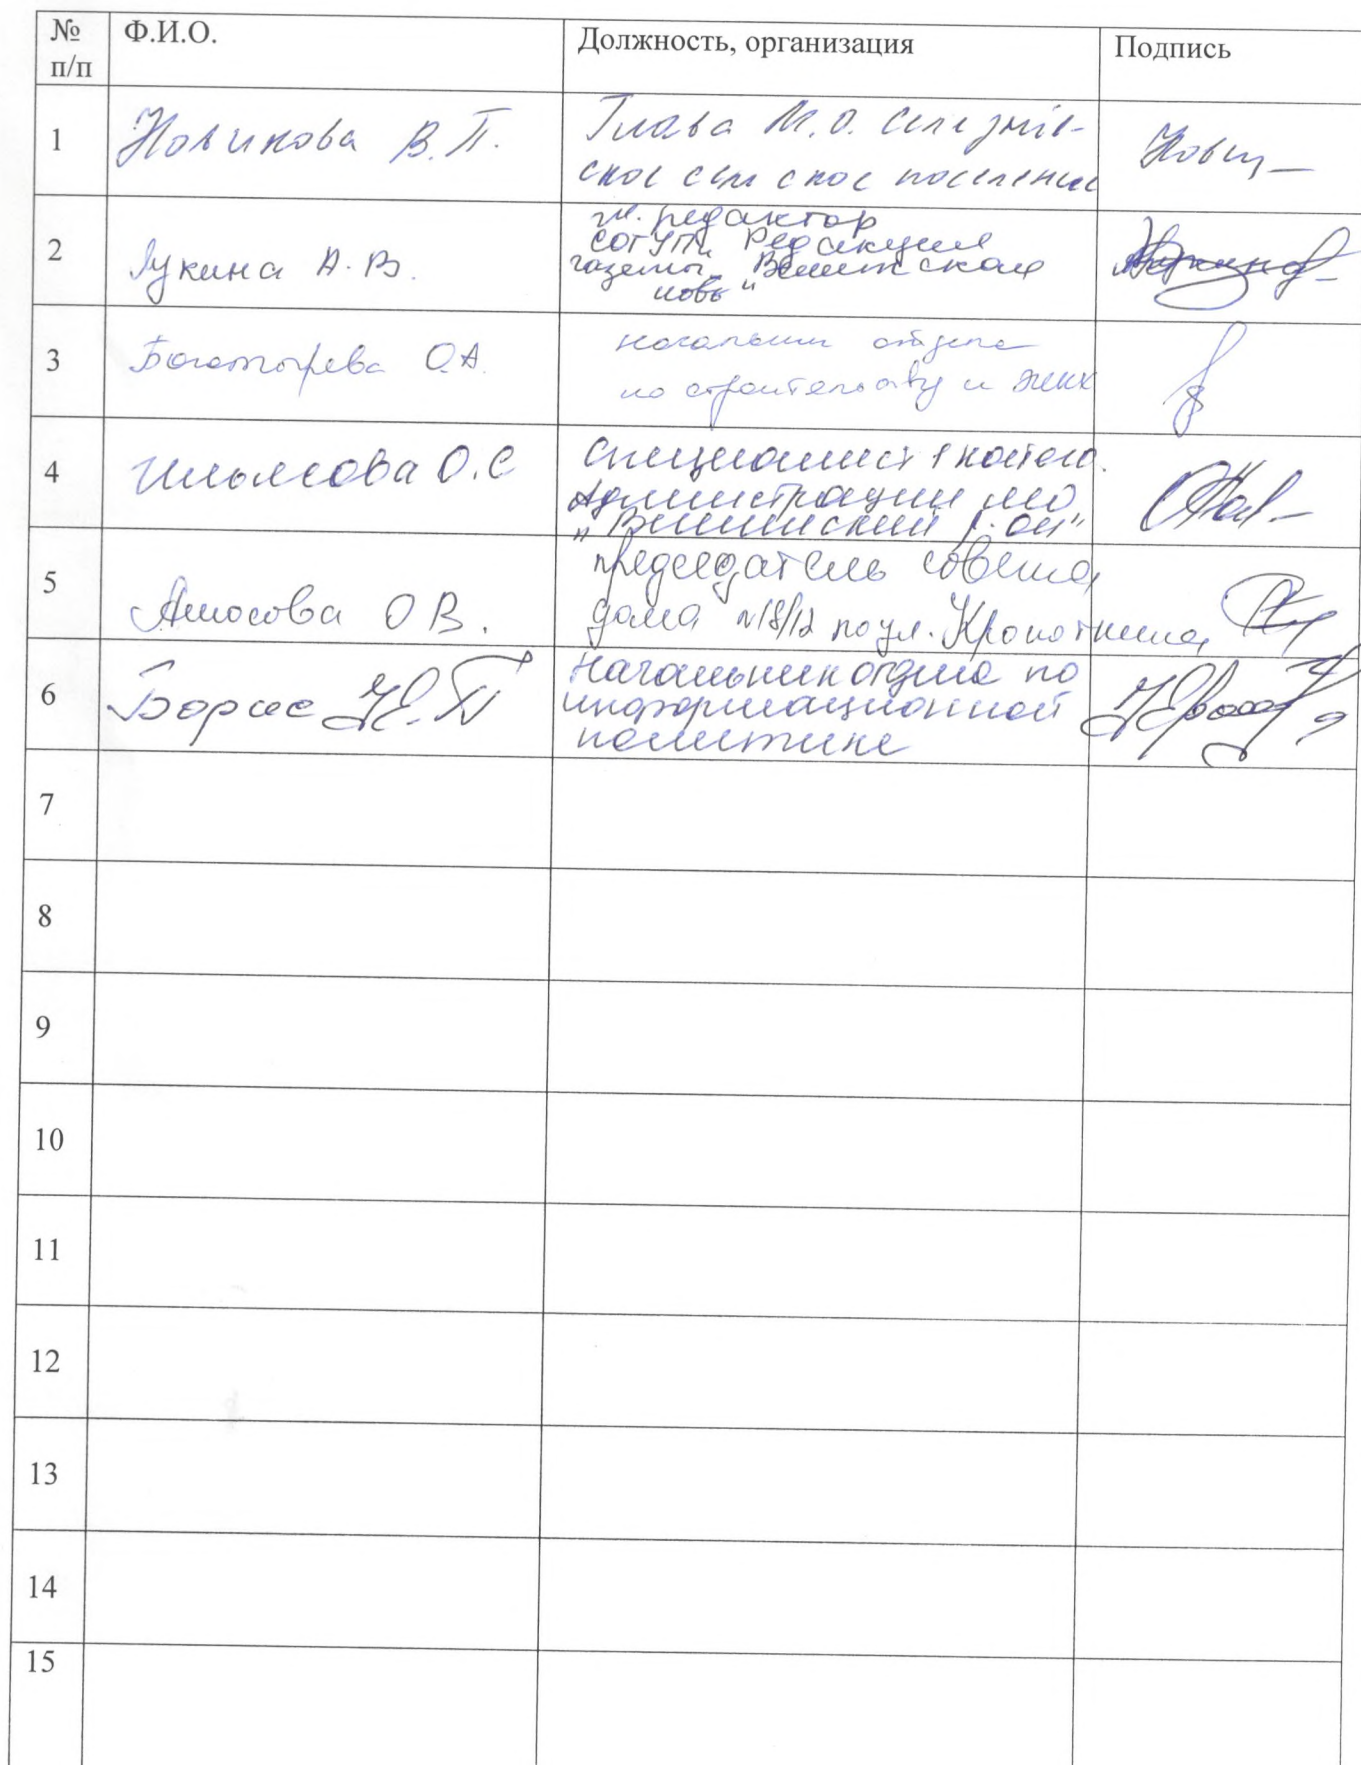 № п/п
Ф.И.О.
Должность, организация
Подпись
1
Новикова В.П.
Глава М.О. Селезнёв-
ское сельское поселение
Нович
2
Лукина А.В.
гл. редактор
СОГУП „Редакция
газеты „Вяземская
новь"
3
Богатырева О.А.
начальник отдела
по строительству и ЖКХ
4
О.С
специалист 1 катего.
Администрации МО
„Вяземский р-он"
5
Амосова О В.
председатель совета
дома №18/12 по ул. Кропоткина
6
Борис
начальник отдела по
информационной
политике
7
8
9
10
11
12
13
14
15